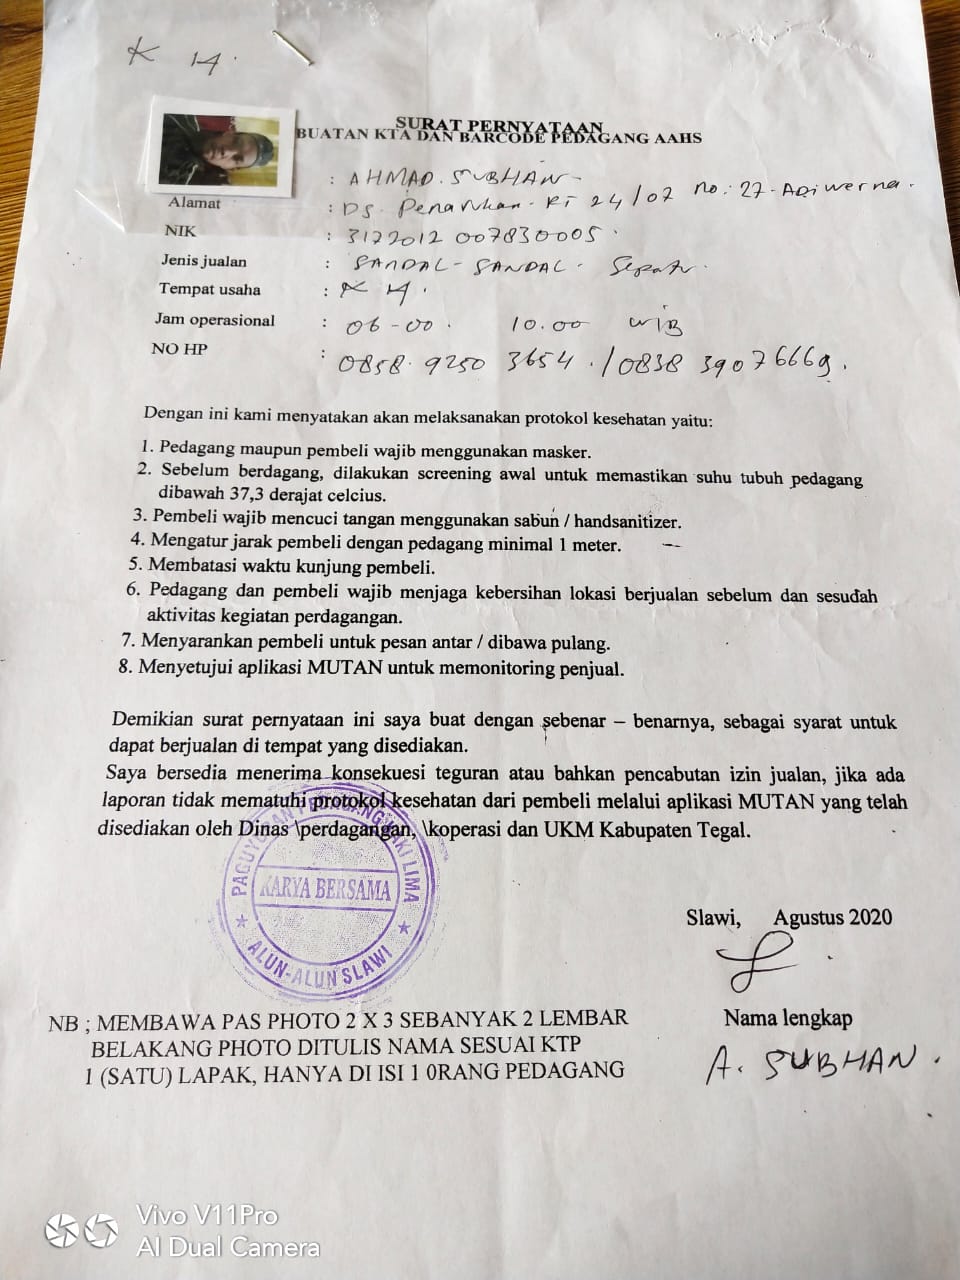 K 14.
SURAT PERNYATAAN
BUATAN KTA DAN BARCODE PEDAGANG AAHS
: AHMAD. SUBHAN -
Alamat : DS. Penarukan. RT 24/07 no. 27- ADiwerna.
NIK : 3172012 007830005.
Jenis jualan : SANDAL - SANDAL - Sepatu.
Tempat usaha : K 14.
Jam operasional : 06-00. 10.00 WIB
NO HP : 0858. 9250 3654. / 0838 3907 6669.
Dengan ini kami menyatakan akan melaksanakan protokol kesehatan yaitu:
1. Pedagang maupun pembeli wajib menggunakan masker.
2. Sebelum berdagang, dilakukan screening awal untuk memastikan suhu tubuh pedagang
dibawah 37,3 derajat celcius.
3. Pembeli wajib mencuci tangan menggunakan sabun / handsanitizer.
4. Mengatur jarak pembeli dengan pedagang minimal 1 meter.
5. Membatasi waktu kunjung pembeli.
6. Pedagang dan pembeli wajib menjaga kebersihan lokasi berjualan sebelum dan sesudah
aktivitas kegiatan perdagangan.
7. Menyarankan pembeli untuk pesan antar / dibawa pulang.
8. Menyetujui aplikasi MUTAN untuk memonitoring penjual.
Demikian surat pernyataan ini saya buat dengan sebenar – benarnya, sebagai syarat untuk
dapat berjualan di tempat yang disediakan.
Saya bersedia menerima konsekuesi teguran atau bahkan pencabutan izin jualan, jika ada
laporan tidak mematuhi protokol kesehatan dari pembeli melalui aplikasi MUTAN yang telah
disediakan oleh Dinas \perdagangan, \koperasi dan UKM Kabupaten Tegal.
PAGUYUBAN PEDAGANG KAKI LIMA
KARYA BERSAMA
ALUN-ALUN SLAWI
Slawi, Agustus 2020
NB ; MEMBAWA PAS PHOTO 2 X 3 SEBANYAK 2 LEMBAR
BELAKANG PHOTO DITULIS NAMA SESUAI KTP
1 (SATU) LAPAK, HANYA DI ISI 1 0RANG PEDAGANG
Nama lengkap
A. SUBHAN.
Vivo V11Pro
AI Dual Camera